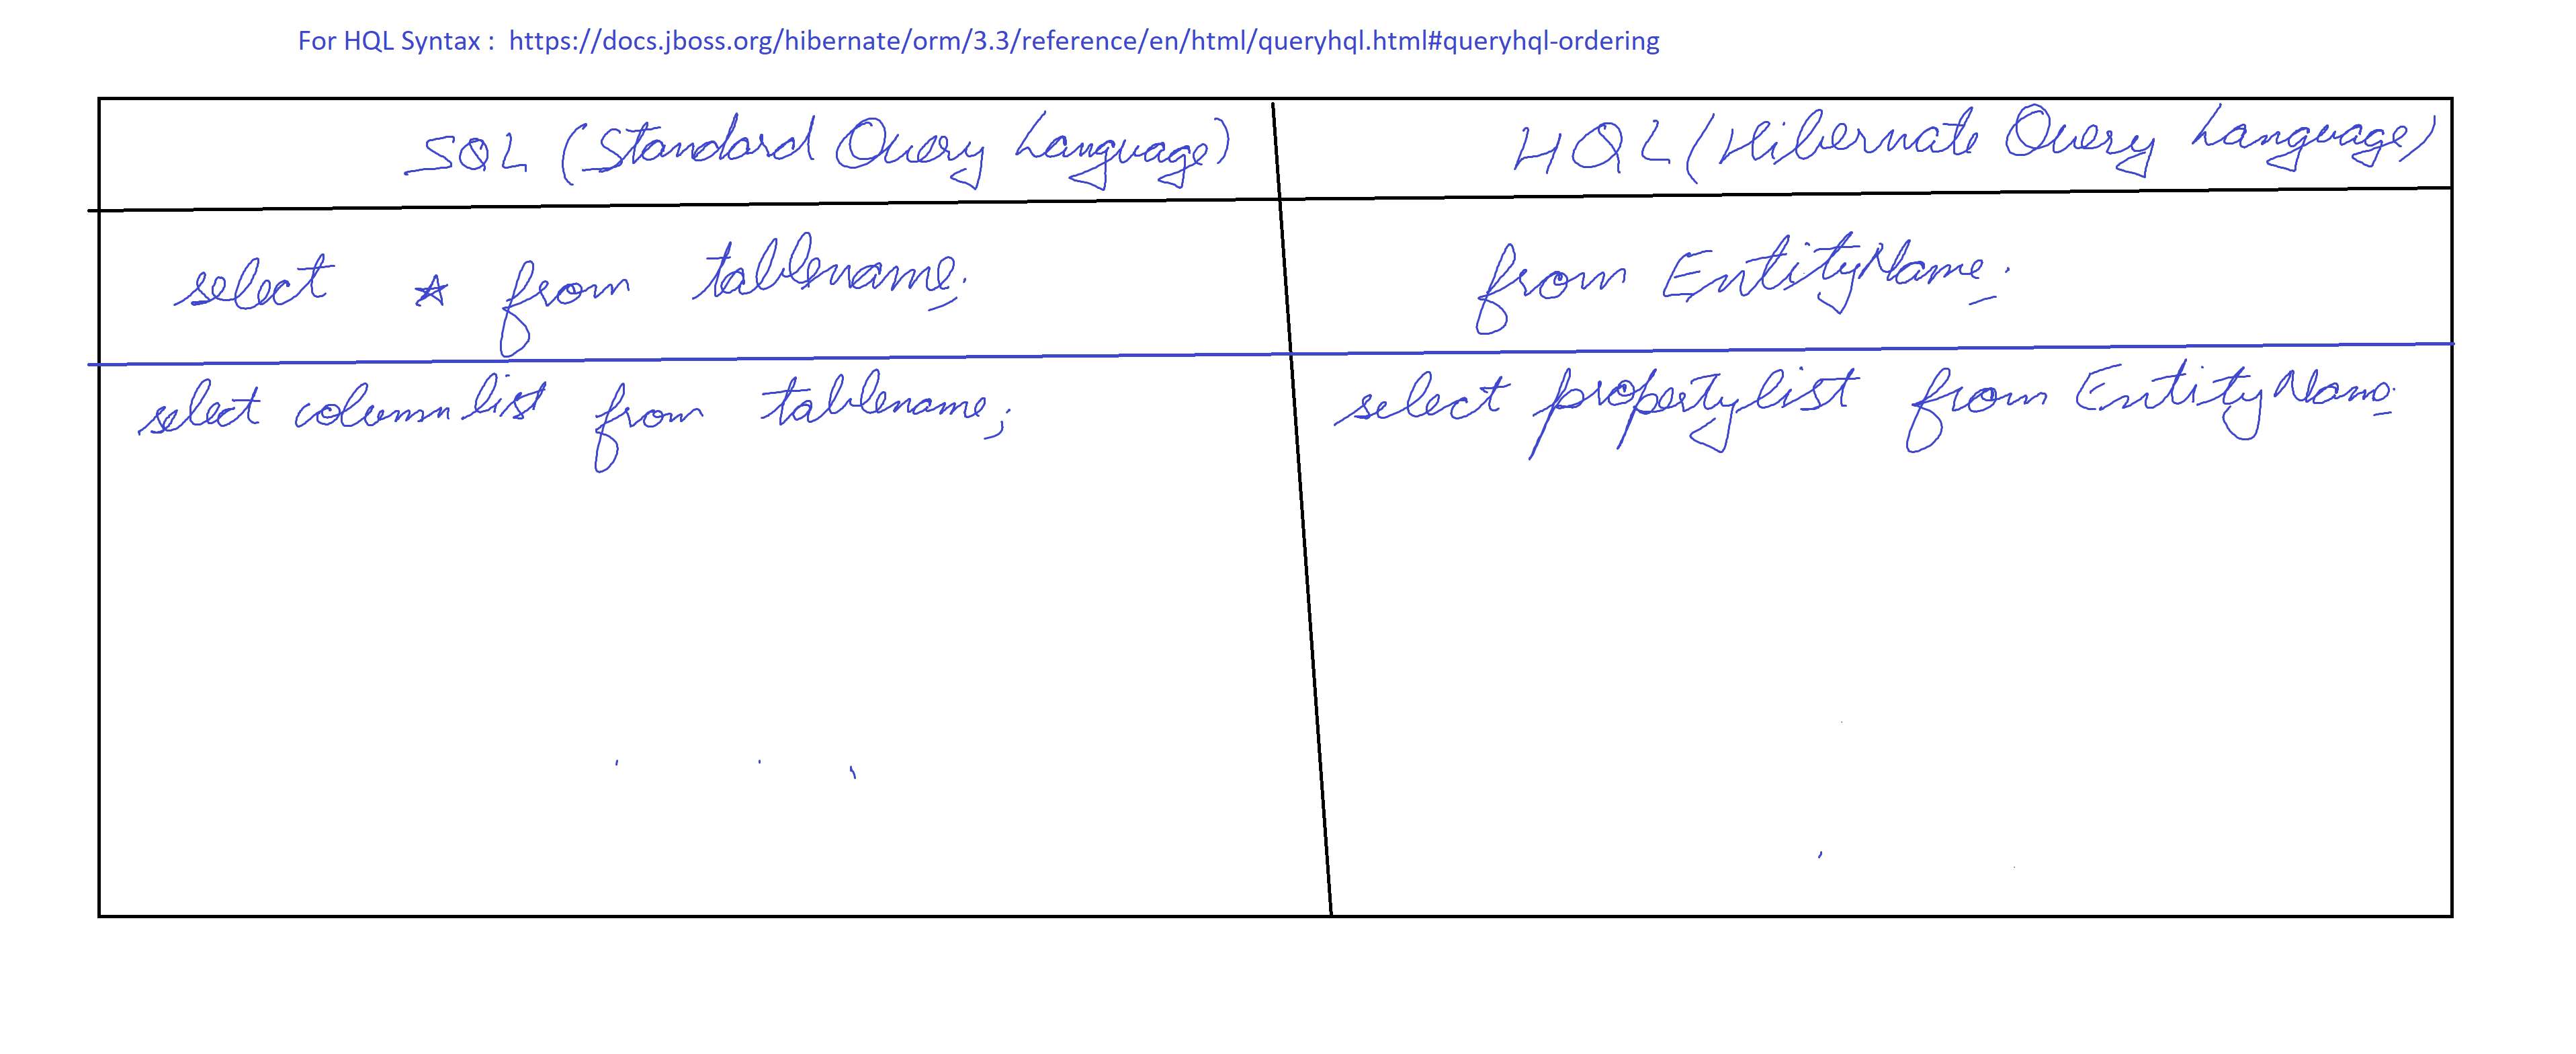 For HQL Syntax : https://docs.jboss.org/hibernate/orm/3.3/reference/en/html/queryhql.html#queryhql-ordering
SQL (Standard Query Language)
HQL (Hibernate Query Language)
select * from tablename;
from EntityName;
select columnlist from tablename;
select propertylist from EntityName;